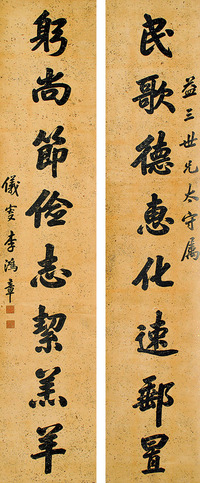 益三世兄太守屬
民歌德惠化速郵置
躬尚節儉志絜羔羊
儀叟李鴻章